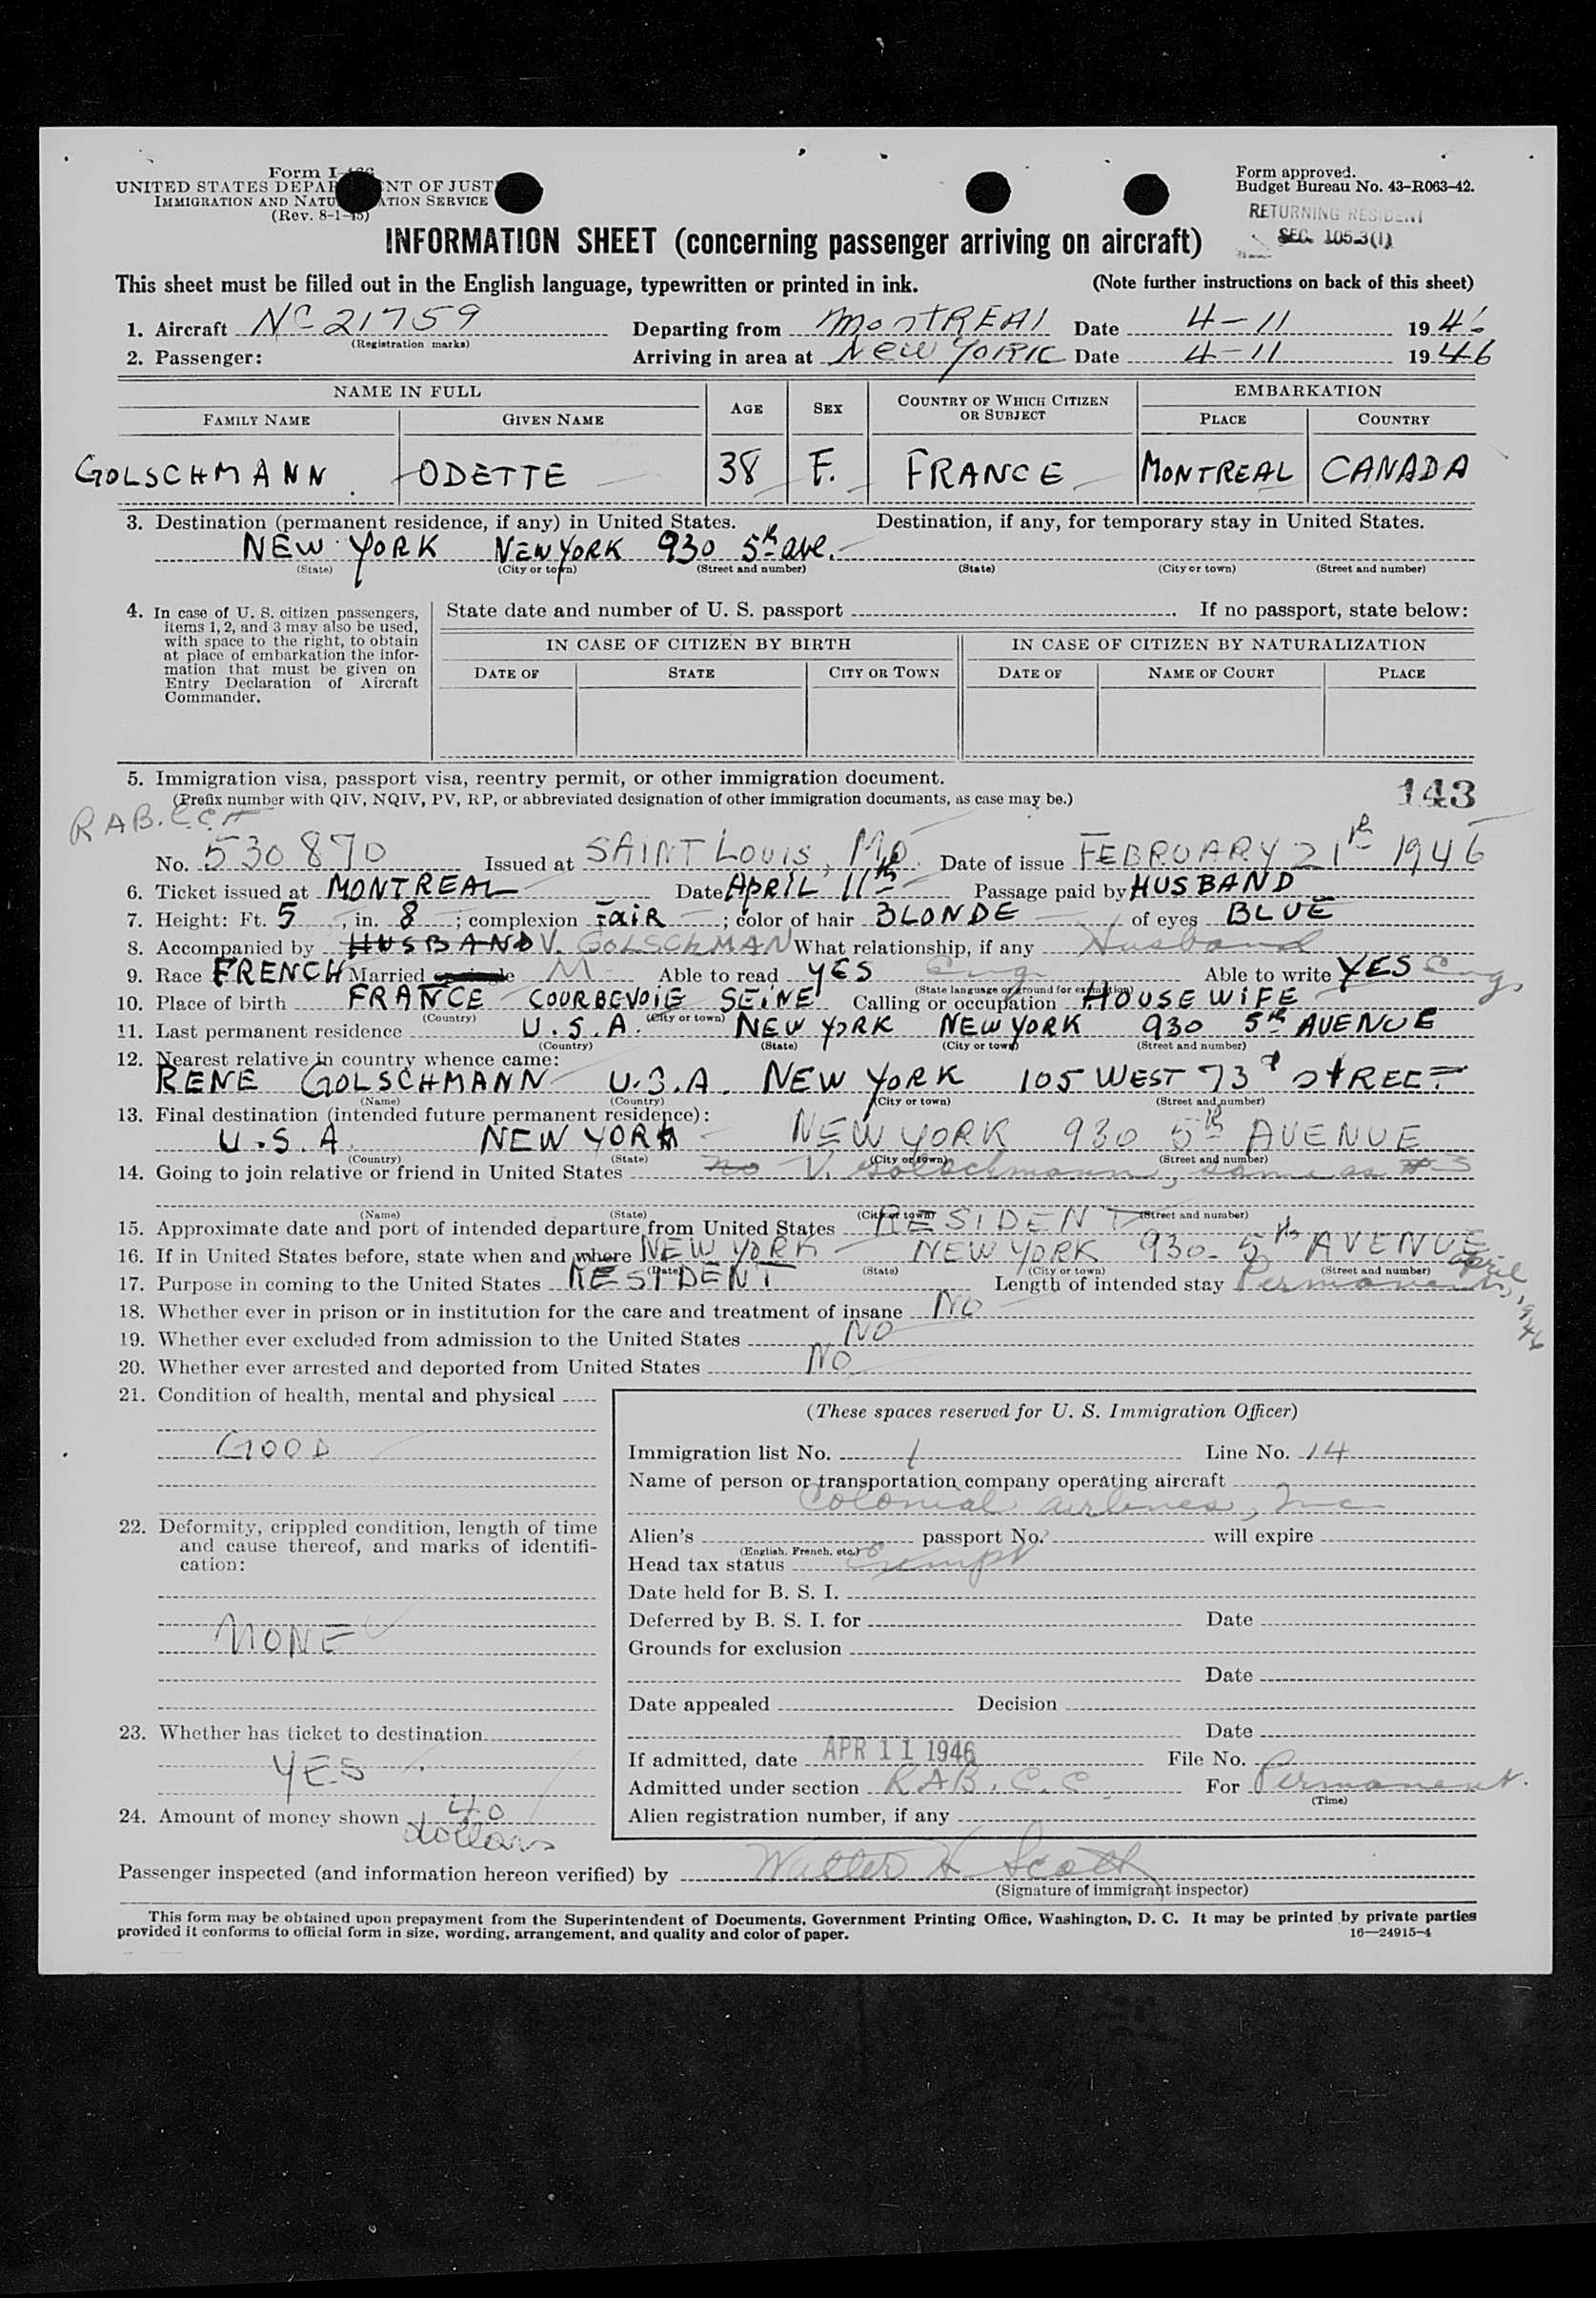 Form I-466
UNITED STATES DEPARTMENT OF JUSTICE
IMMIGRATION AND NATURALIZATION SERVICE
(Rev. 8-1-45)
Form approved.
Budget Bureau No. 43-R063-42.
RETURNING RESIDENT
SEC. 105.3(1)
INFORMATION SHEET (concerning passenger arriving on aircraft)
This sheet must be filled out in the English language, typewritten or printed in ink. (Note further instructions on back of this sheet)
1. Aircraft NC 21759 Departing from MONTREAL Date 4-11 1946
(Registration marks)
2. Passenger: Arriving in area at NEW YORK Date 4-11 1946
NAME IN FULL AGE SEX COUNTRY OF WHICH CITIZEN OR SUBJECT EMBARKATION
FAMILY NAME GIVEN NAME PLACE COUNTRY
GOLSCHMANN ODETTE 38 F. FRANCE MONTREAL CANADA
3. Destination (permanent residence, if any) in United States. Destination, if any, for temporary stay in United States.
NEW YORK NEW YORK 930 5th ave.
(State) (City or town) (Street and number) (State) (City or town) (Street and number)
4. In case of U. S. citizen passengers, items 1, 2, and 3 may also be used, with space to the right, to obtain at place of embarkation the information that must be given on Entry Declaration of Aircraft Commander.
State date and number of U. S. passport If no passport, state below:
IN CASE OF CITIZEN BY BIRTH IN CASE OF CITIZEN BY NATURALIZATION
DATE OF STATE CITY OR TOWN DATE OF NAME OF COURT PLACE
5. Immigration visa, passport visa, reentry permit, or other immigration document.
(Prefix number with QIV, NQIV, PV, RP, or abbreviated designation of other immigration documents, as case may be.)
143
RAB.
No. 530870 Issued at SAINT LOUIS, MO. Date of issue FEBRUARY 21th 1946
6. Ticket issued at MONTREAL Date APRIL 11th Passage paid by HUSBAND
7. Height: Ft. 5, in. 8; complexion FAIR; color of hair BLONDE of eyes BLUE
8. Accompanied by HUSBAND V. GOLSCHMAN What relationship, if any Husband
9. Race FRENCH Married or single M Able to read YES Eng Able to write YES Eng
(State language or ground for exemption)
10. Place of birth FRANCE COURBEVOIE SEINE Calling or occupation HOUSEWIFE
(Country) (City or town)
11. Last permanent residence U.S.A. NEW YORK NEW YORK 930 5th AVENUE
(Country) (State) (City or town) (Street and number)
12. Nearest relative in country whence came:
RENE GOLSCHMANN U.S.A. NEW YORK 105 WEST 73d STREET
(Name) (Country) (City or town) (Street and number)
13. Final destination (intended future permanent residence):
U.S.A. NEW YORK NEW YORK 930 5th AVENUE
(Country) (State) (City or town) (Street and number)
14. Going to join relative or friend in United States no V. Golschmann, same as #3
(Name) (State) (City or town) (Street and number)
15. Approximate date and port of intended departure from United States RESIDENT
16. If in United States before, state when and where NEW YORK NEW YORK 930 - 5th AVENUE
(Date) (State) (City or town) (Street and number)
April 1946
17. Purpose in coming to the United States RESIDENT Length of intended stay Permanent
18. Whether ever in prison or in institution for the care and treatment of insane NO
19. Whether ever excluded from admission to the United States NO
20. Whether ever arrested and deported from United States NO
21. Condition of health, mental and physical
GOOD
22. Deformity, crippled condition, length of time and cause thereof, and marks of identification:
NONE
23. Whether has ticket to destination
YES
24. Amount of money shown 40
dollars
(These spaces reserved for U. S. Immigration Officer)
Immigration list No. 1 Line No. 14
Name of person or transportation company operating aircraft
Colonial Airlines, Inc
Alien's passport No. will expire
(English, French, etc.)
Head tax status Exempt
Date held for B. S. I.
Deferred by B. S. I. for Date
Grounds for exclusion
Date
Date appealed Decision
Date
If admitted, date APR 11 1946 File No.
Admitted under section R.A.B., C.C. For Permanent.
(Time)
Alien registration number, if any
Passenger inspected (and information hereon verified) by Walter H Scott
(Signature of immigrant inspector)
This form may be obtained upon prepayment from the Superintendent of Documents, Government Printing Office, Washington, D. C. It may be printed by private parties
provided it conforms to official form in size, wording, arrangement, and quality and color of paper. 16—24915-4